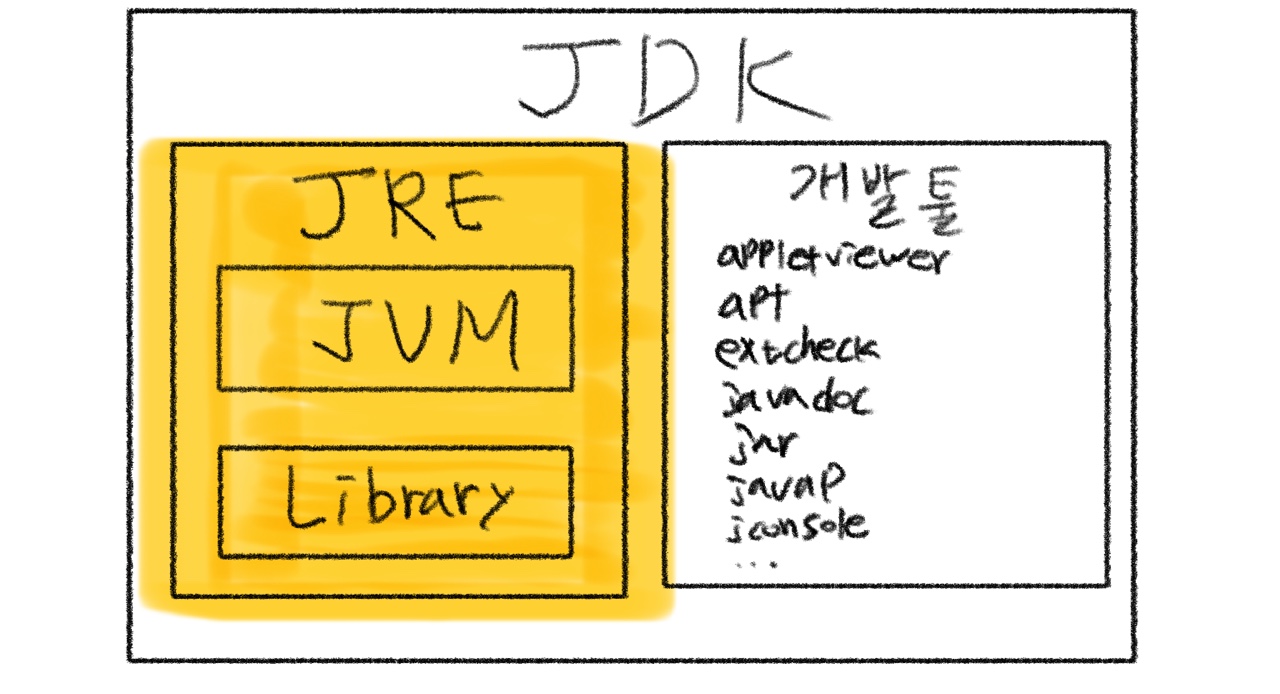 JDK
JRE
JVM
Library
개발 툴
appletviewer
apt
extcheck
javadoc
jar
javap
jconsole
...